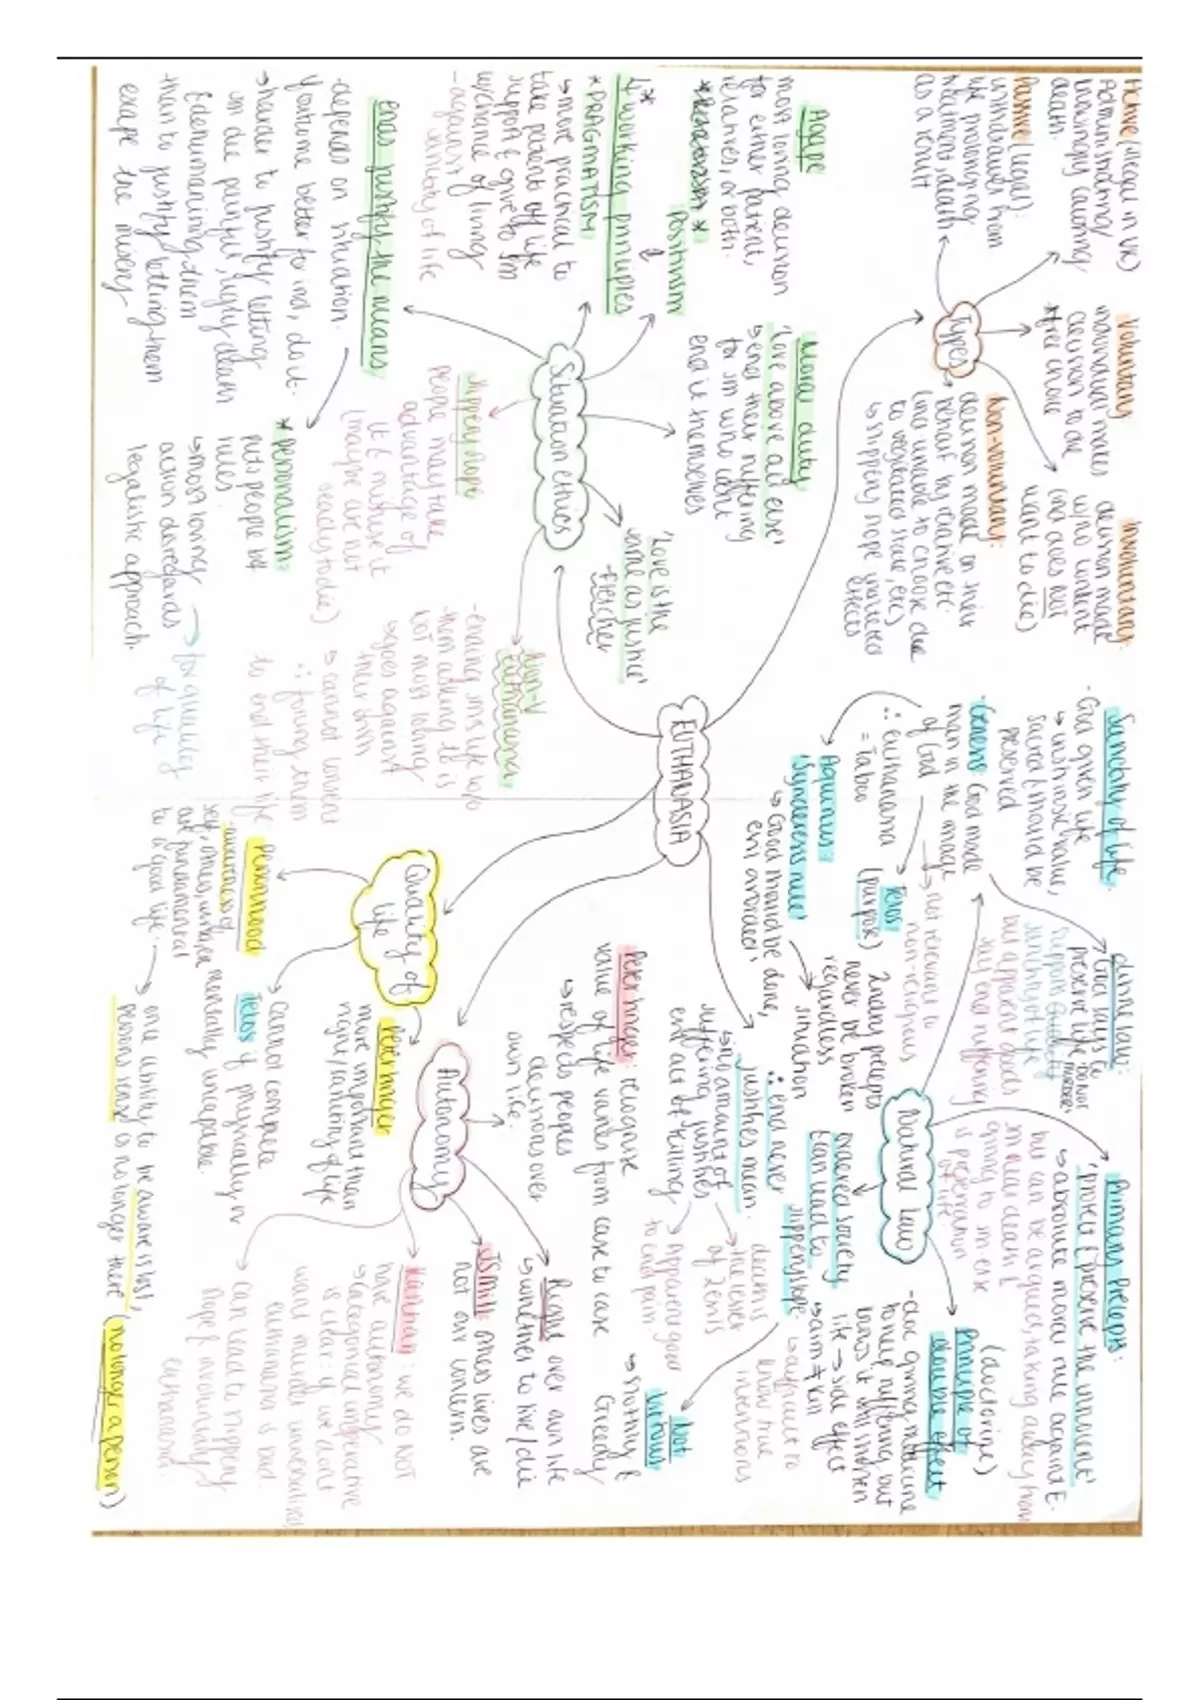 EUTHANASIA
Types
Active (illegal in UK)
Administering/
knowingly causing
death.
Passive (legal):
withdrawl from
life prolonging
treatment, death
as a result
Voluntary:
individual makes
decision to die
*free choice
Involuntary:
decision made
w/no consent
(ind does NOT
want to die)
Non-voluntary:
decision made on their
behalf by relative etc.
(ind unable to choose due
to vegetated state, etc)
↳ slippery slope
effects
Situation ethics
Agape
most loving decision
for either patient,
relatives, or both.
Moral duty
'Love above all else'
↳ end their suffering
for sm who idont
end it themselves
Positivism
4 working principles
*PRAGMATISM
↳ more practical to
take patient off life
support & give to sm
w/chance of living
- against
sanctity of life
'Love is the
same as justice'
- Fletcher
ends justify the means
- depends on situation.
If outcome better for ind, do it.
↳ harder to justify letting
sm die painful, ugly death
& dehumanising them
than to justify letting them
escape the misery
slippery slope
people may take
advantage of
it & misuse it
(maybe are not
ready to die)
*personalism:
puts people b4
rules
↳ most loving
action disregards
legalistic approach.
→ for quality
of life
Non-V
Euthanasia:
- ending sms life w/o
them asking to is
not most loving
↳ goes against
their
↳ cannot consent
∴ forcing them
to end their life
Quality of
life
Personhood
awareness of
self, others,
are fundamental
to a good life.
→ one ability to be aware is lost,
persons sense is no longer there (no longer a person)
cannot complete
Telos if
physically or
mentally incapable.
Peter Singer
more important than
right/sanctity of life
Autonomy
Peter Singer: recognise
value of life varies from case to case
↳ respects peoples
decisions over
own life.
Right over own life
↳ whether to live/die
JS Mill: others lives are
not our concern.
Kantian: we do NOT
have autonomy
↳ categorical imperative
is clear: if we don't
want murder universalised,
euthanasia is bad
can lead to slippery
slope & involuntary
euthanasia.
Natural Law
Sanctity of life
- God given life
↳ instrinsic value,
sacred & should be
preserved
- Genesis: God made
man in the image
of God
∴ euthanasia
= Taboo
→ not relevant to
non-religious
↳ Telos
(purpose)
Aquinas:
'synderesis rule'
↳ Good should be done,
evil avoided
2ndry precepts
never be broken
regardless
situation
divine law:
God says to
preserve life,
supports
sanctity of life
but apparent goods
say end suffering
Primary Precepts:
'protect & preserve the innocent'
↳ absolute moral rule against E.
but can be argued, taking away from
sm near death &
giving to sm else
is preservation
of life.
Principle of
double effect
(doctorine)
- doc giving medicine
to help suffering but
knows it will shorten
life → side effect
↳ aim ≠ kill
ordered society
E can lead to
slippery slope
↳ difficult to
know true
intentions
∴ end never
justifies mean.
↳ no amount of
suffering justifies
evil act of killing
→ death is
the lesser
of 2 evils
→ apparent good
to end pain
Not
virtous
↳ slothly &
Greedy